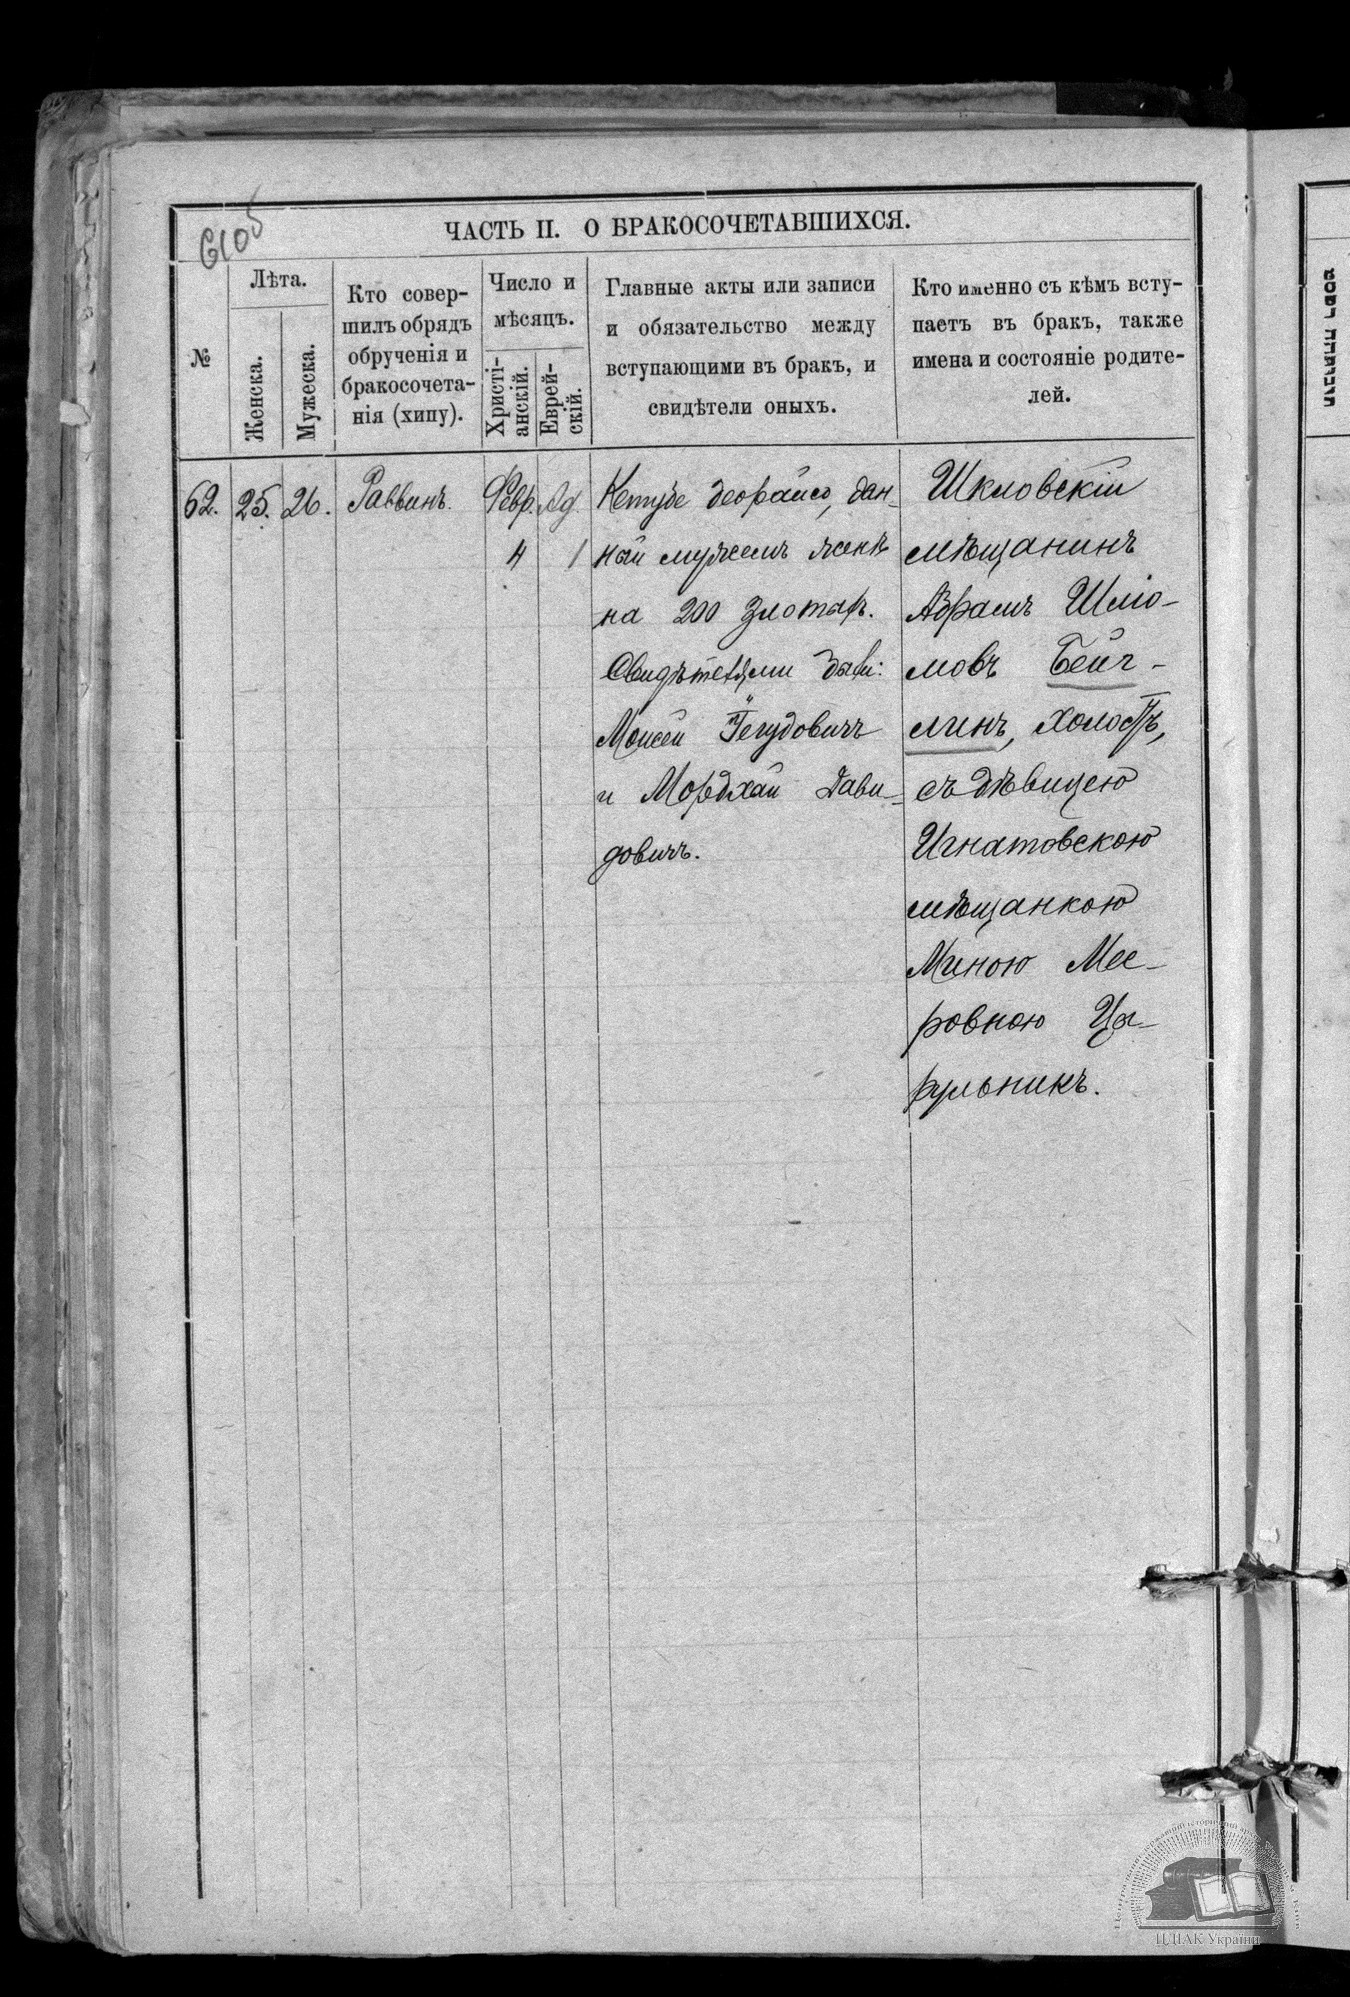 6105
ЧАСТЬ II. О БРАКОСОЧЕТАВШИХСЯ.
№
Лѣта.
Женска.
Мужеска.
Кто совер-
шилъ обрядъ
обрученія и
бракосочета-
нія (хипу).
Число и
мѣсяцъ.
Христі-
анскій.
Еврей-
скій.
Главные акты или записи
и обязательство между
вступающими въ бракъ, и
свидѣтели оныхъ.
Кто именно съ кѣмъ всту-
паетъ въ бракъ, также
имена и состояніе родите-
лей.
62.
25.
26.
Раввинъ.
Февр.
4
Ад.
1
Кетубе деорайсо, дан-
ный мужемъ женѣ
на 200 злотыхъ.
Свидѣтелями были:
Моисей Іегудовичъ
и Мордхай Дави-
довичъ.
Шкловскій
мѣщанинъ
Абрамъ Шліо-
мовъ Бейг-
линъ, холостъ,
съ дѣвицею
Игнатовскою
мѣщанкою
Миною Мее-
ровною Цы-
рульникъ.
ЦДІАК України